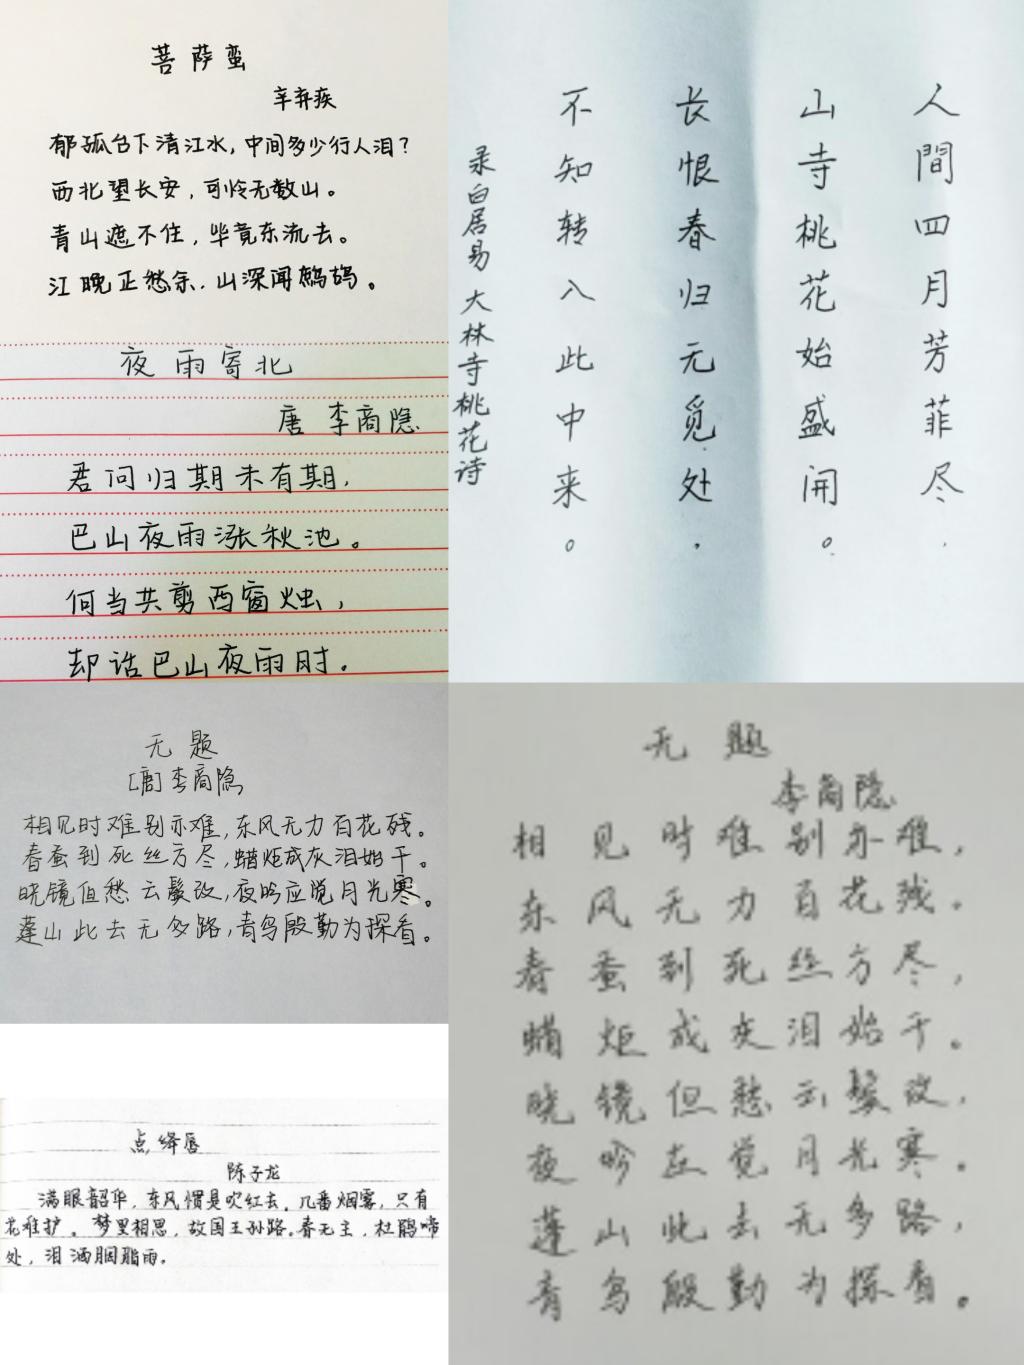 菩萨蛮
辛弃疾
郁孤台下清江水,中间多少行人泪?
西北望长安,可怜无数山。
青山遮不住,毕竟东流去。
江晚正愁余.山深闻鹧鸪。
夜雨寄北
唐 李商隐
君问归期未有期,
巴山夜雨涨秋池。
何当共剪西窗烛,
却话巴山夜雨时.
人間四月芳菲尽.
山寺桃花始盛開。
长恨春归无觅处.
不知转入此中来。
录白居易 大林寺桃花诗
无题
[唐]李商隐
相见时难别亦难,东风无力百花残。
春蚕到死丝方尽,蜡炬成灰泪始干。
晓镜但愁云鬓改,夜吟应觉月光寒。
蓬山此去无多路,青鸟殷勤为探看。
无题
李商隐
相见时难别亦难,
东风无力百花残。
春蚕到死丝方尽,
蜡炬成灰泪始干。
晓镜但愁云鬓改,
夜吟应觉月光寒。
蓬山此去无多路,
青鸟殷勤为探看。
点绛唇
陈子龙
满眼韶华,东风惯是吹红去.几番烟雾,只有
花难护。梦里相思,故国王孙路.春无主,杜鹃啼
处,泪洒胭脂雨.